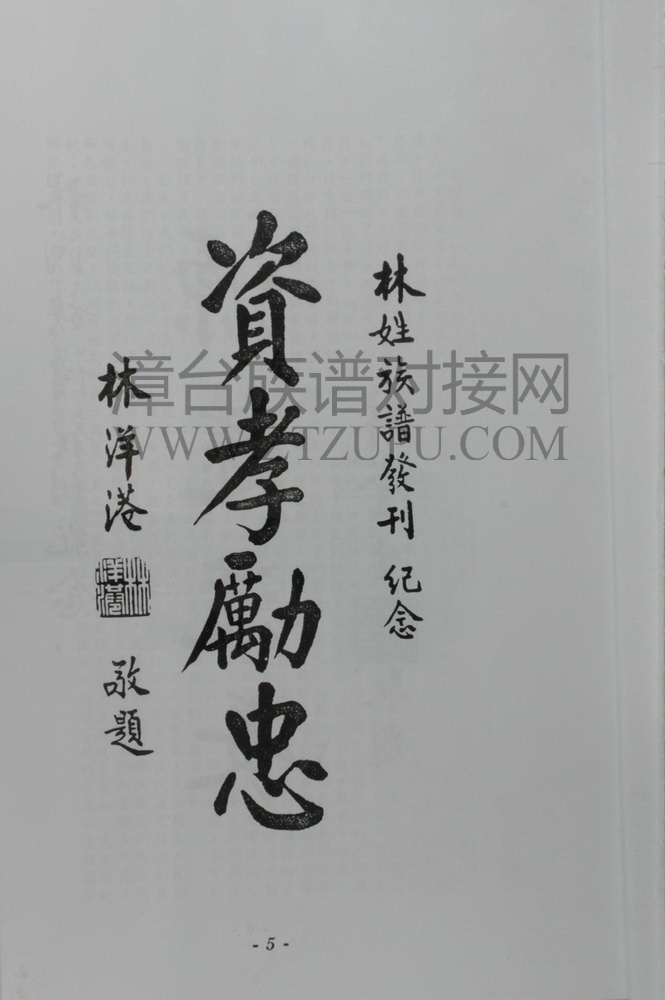 林姓族譜發刊紀念
資孝勵忠
林洋港
敬題
漳台族谱对接网
WWW.ZTZUPU.COM
- 5 -